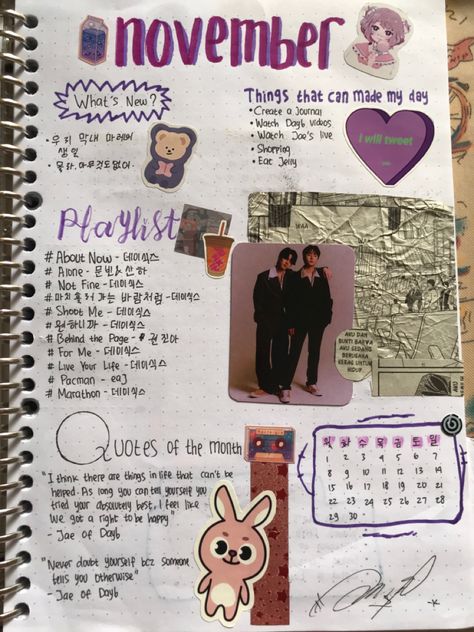 november
What's New?
· 우리 막내
생일
· 몰라, 아무것도 없어.
Things that can made my day
• Create a Journal
• Watch Day6 videos
• Watch Jae's live
• Shopping
• Eat Jelly
I will tweet
Playlist
# About Now - 데이식스
# Alone - 문빈&산하
# Not Fine - 데이식스
# 마치 흘러가는 바람처럼 -데이식스
# Shoot Me - 데이식스
# 원하니까 - 데이식스
# Behind the Page - 권진아
# For Me - 데이식스
# Live Your Life - 데이식스
# Pacman - eaJ
# Marathon - 데이식스
AKU DAH
BUKTI BAHWA
AKU SEDANG
BERUSAHA
KERAS UNTUK
HIDUP.
Quotes of the month
"I think there are things in life that can't be
helped. As long you can tell yourself you
tried your absolutely best, I feel like
we got a right to be happy"
- Jae of Day6
"Never doubt yourself bcz someone
tells you otherwise"
- Jae of Day6
월 화 수 목 금 토 일
1 2 3 4 5 6 7
8 9 10 11 12 13 14
15 16 17 18 19 20 21
22 23 24 25 26 27 28
29 30
-K